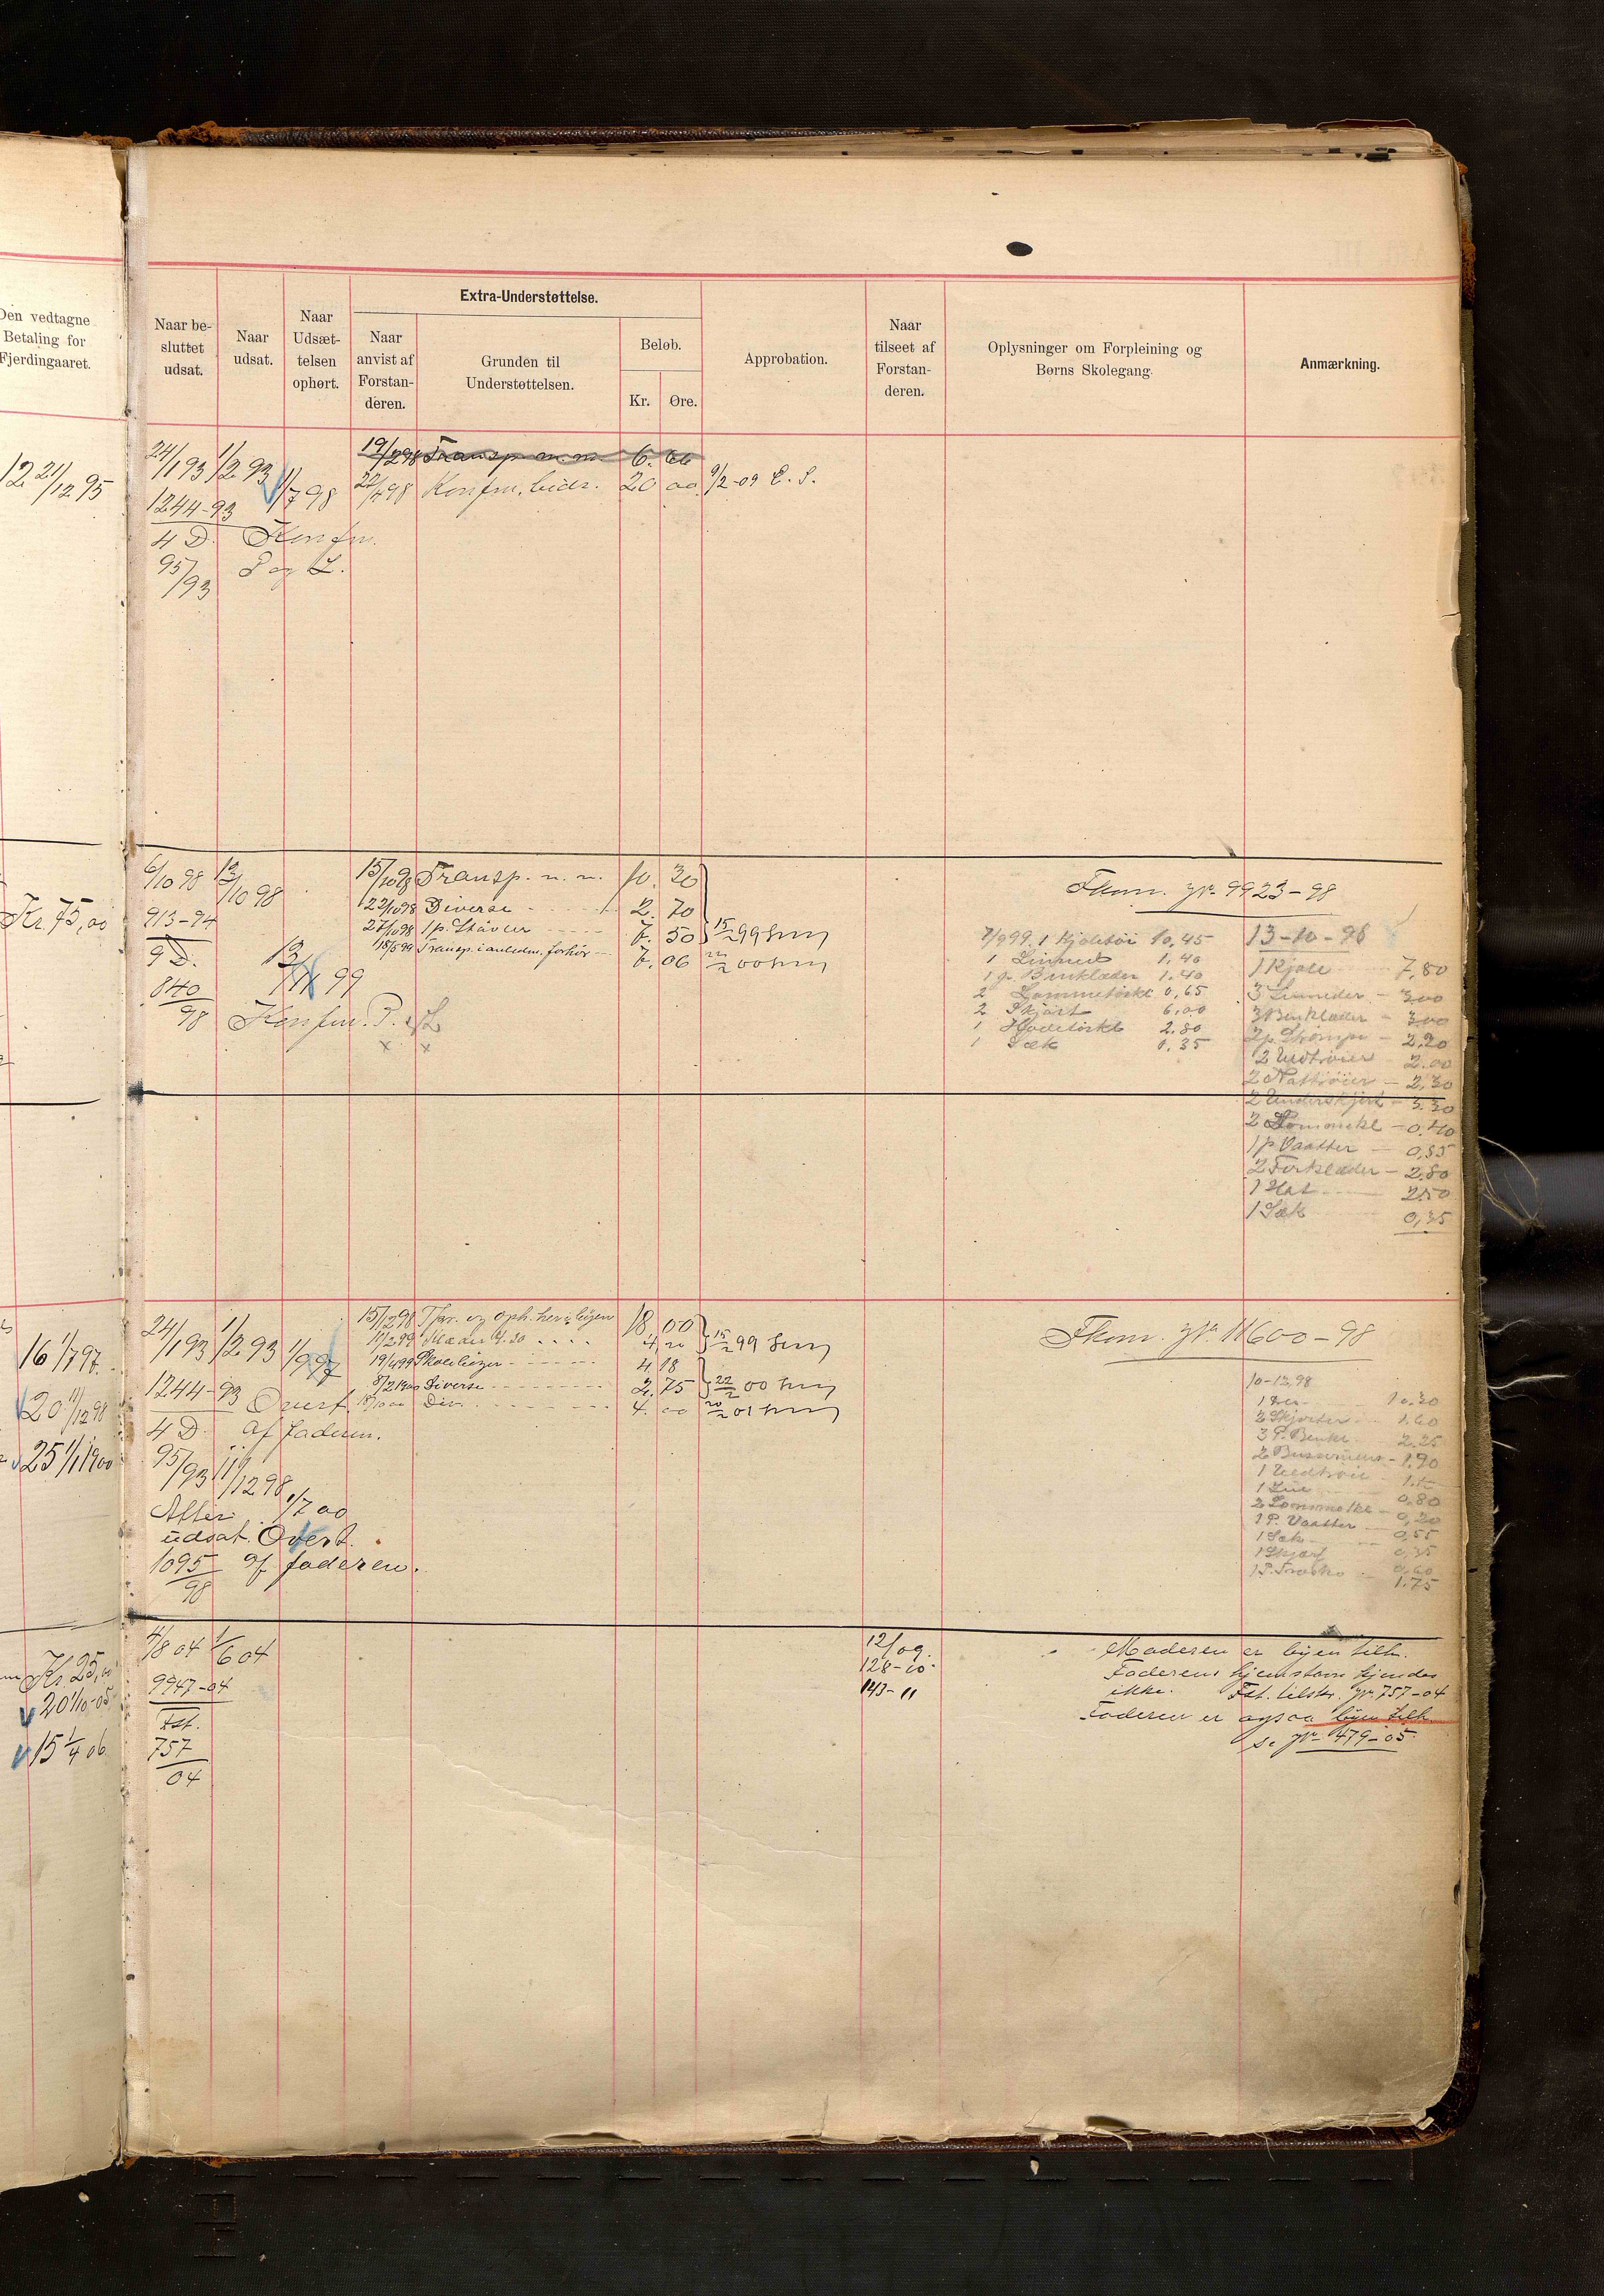 Den vedtagne
Betaling for
Fjerdingaaret.
Naar be-
sluttet
udsat.
Naar
udsat.
Naar
Udsæt-
telsen
ophørt.
Extra-Understøttelse.
Naar
anvist af
Forstan-
deren.
Grunden til
Understøttelsen.
Beløb.
Kr.
Øre.
Approbation.
Naar
tilseet af
Forstan-
deren.
Oplysninger om Forpleining og
Børns Skolegang.
Anmærkning.
12 21/12 95
24/1 93 1/2 93
1/7 98
1244-93
4 D. Konfm.
95/93 P og L.
19/2 98 Transp. m. m. 6.
22/4 98 Konfm. bidr. 20 00 9/2-09
Kr. 75,00
6/10 98 13/10 98
913-94
9 D.
840/98
Konfm. P.
15/10 98 Transp. m. m. 10. 30
22/10 98 Diverse 2. 70
27/10 98 1 p. Støvler 7. 50 15/2 99
18/5 99 Transp. i anledn. forhør 6. 06 22/2 00
Fkom. gr. 9923-98
7/9 99. 1 Kjoletøi 10,45
1 Linned 1,40
1 p. Benklæder 1.40
2 Lommetørkl 0,65
2 Skjørt 6,00
1 Hovetørkl 2.80
1 Sæk 0.35
13-10-98
1 Kjole 7,80
3 Linneder 3,00
3 Benklæder 3,00
2 p. Strømpr 2,20
2 Uldtrøier 2.00
2 Nattrøier 2,30
2 Underskjørt 3.30
2 Lommekl 0,40
1 p. Vaatter 0,55
2 Forklæder 2,80
1 Hat 2.50
1 Sæk 0,35
16 1/7 97.
20 11/12 98
25 1/1 1900
24/1 93 1/2 93 1/9 97
1244-93 Overt.
4 D. af faderen.
95/93 11/12 98 1/7 00
Atter
udsat. Overt.
1095/98 af faderen.
15/12 98 Tpr. og oph. her i byen 18 00
11/2 99 4 20 15/2 99
19/4 99 Skolebøger 4 18
8/2 1900 Diverse 2. 75 22/2 00
Div. 4. 00 20/2 01
Fkom. gr. 11600-98
10-12.98
10.30
2 Skjorter 1.60
3 P. Benkl. 2.25
2 Busseruner 1.90
1 Uldtrøie
1 Lue 0.80
2 Lommetkl 0,20
1 P. Vaatter 0,55
1 Sæk 0,35
1 Skjærf 0,60
1 P. Træsko 1.75
Kr. 25,00
20 1/10-05
15 1/4 06
4/8 04 1/6 04
9947-04
Fst.
757
04
12/09.
128-10.
143-11
Moderen er byen tilh.
Faderens hjemstavn kjendes
ikke. Fst. tilstr. gr. 757-04
Faderen er ogsaa byen tilh.
se gr. 479-05.